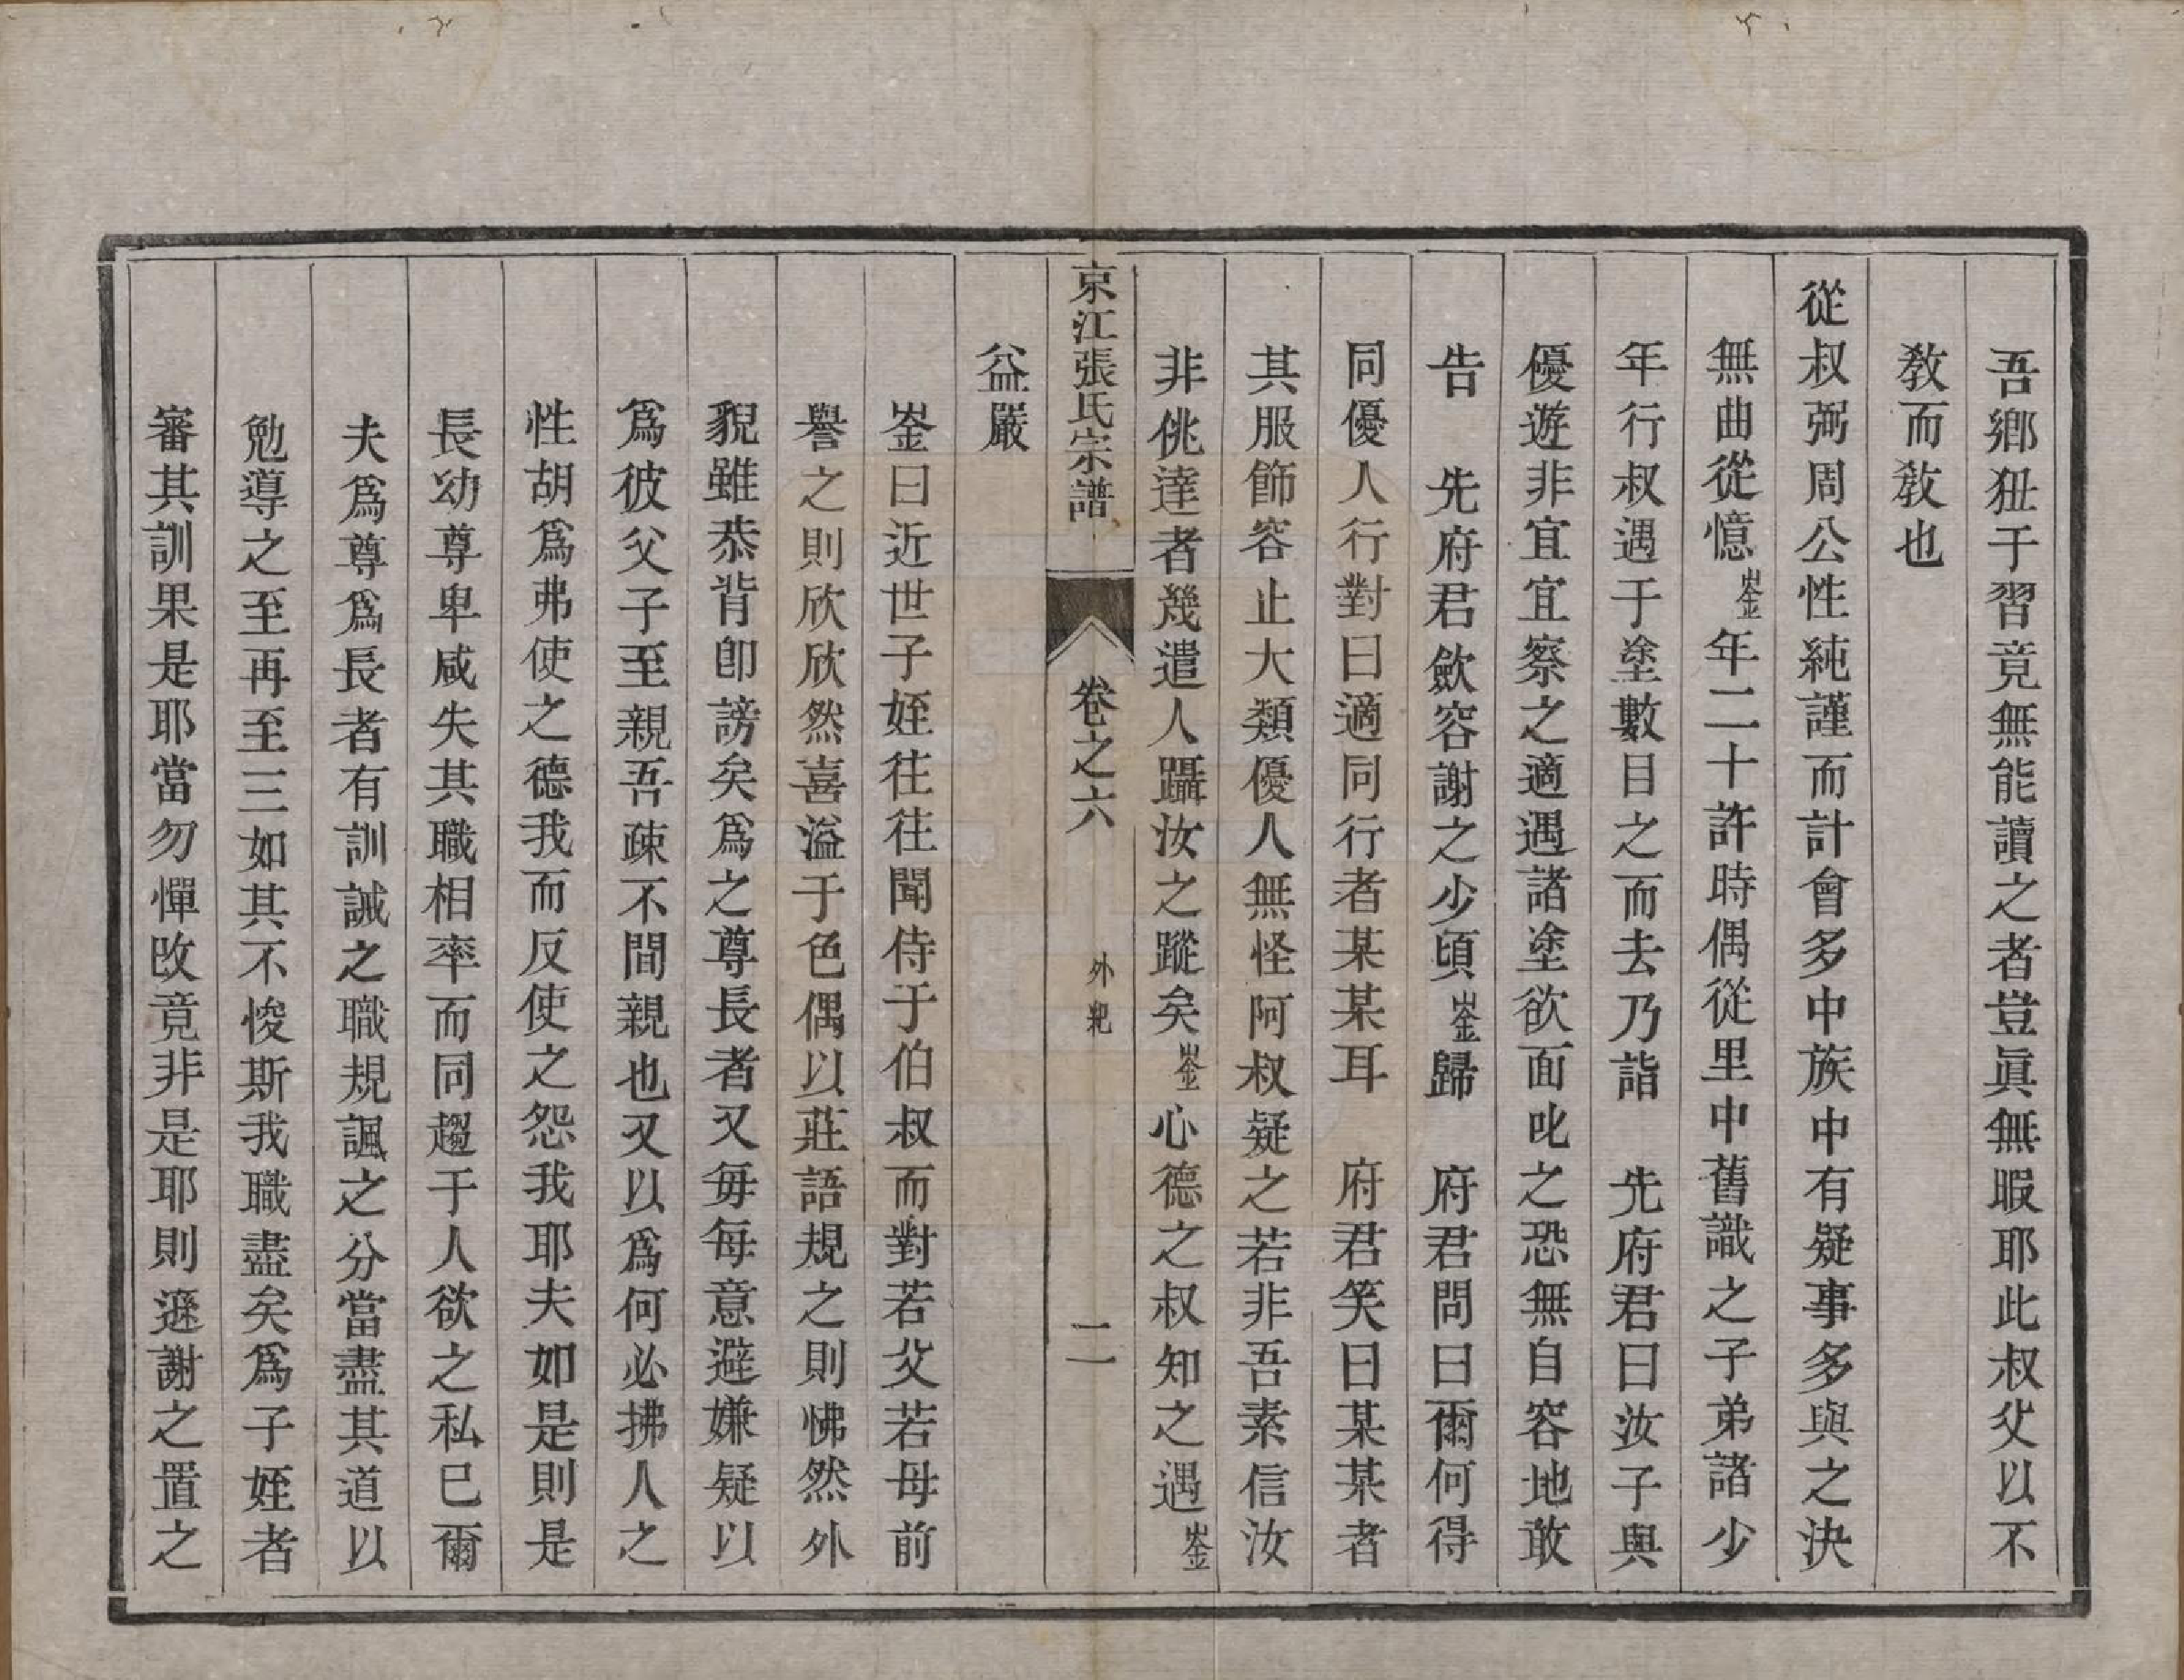 吾鄉狃于習竟無能讀之者豈眞無暇耶此叔父以不
敎而敎也
從叔弼周公性純謹而計會多中族中有疑事多與之決
無曲從憶崟年二十許時偶從里中舊識之子弟諸少
年行叔遇于塗數目之而去乃詣　先府君曰汝子與
優遊非宜宜察之適遇諸塗欲面叱之恐無自容地敢
告　先府君歛容謝之少頃崟歸　府君問曰爾何得
同優人行對曰適同行者某某耳　府君笑曰某某者
其服飾容止大類優人無怪阿叔疑之若非吾素信汝
非佻達者幾遣人躡汝之蹤矣崟心德之叔知之遇崟
京江張氏宗譜　卷之六　外紀　二
益嚴
崟曰近世子姪往往聞侍于伯叔而對若父若母前
譽之則欣欣然喜溢于色偶以莊語規之則怫然外
貌雖恭背卽謗矣爲之尊長者又每每意避嫌疑以
爲彼父子至親吾疎不間親也又以爲何必拂人之
性胡爲弗使之德我而反使之怨我耶夫如是則是
長幼尊卑咸失其職相率而同趨于人欲之私已爾
夫爲尊爲長者有訓誡之職規諷之分當盡其道以
勉導之至再至三如其不悛斯我職盡矣爲子姪者
審其訓果是耶當勿憚改竟非是耶則遜謝之置之